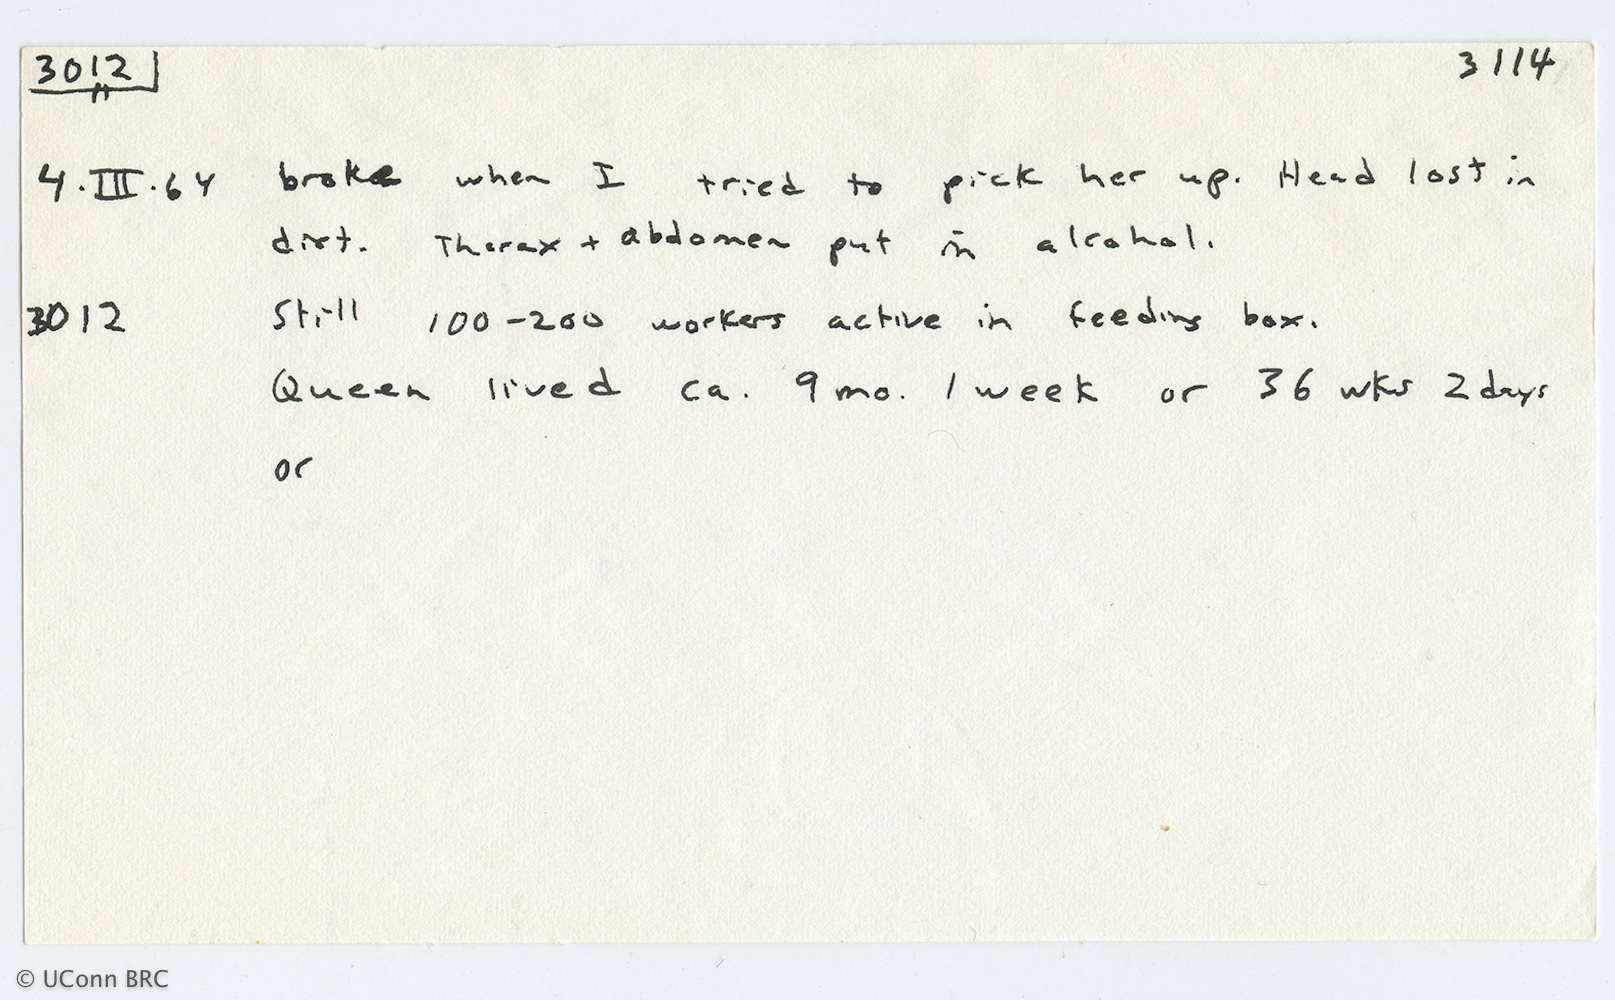 3012 3114
4.III.64 broke when I tried to pick her up. Head lost in
dirt. Thorax + abdomen put in alcohol.
3012 Still 100-200 workers active in feeding box.
Queen lived ca. 9 mo. 1 week or 36 wks 2 days
or
© UConn BRC